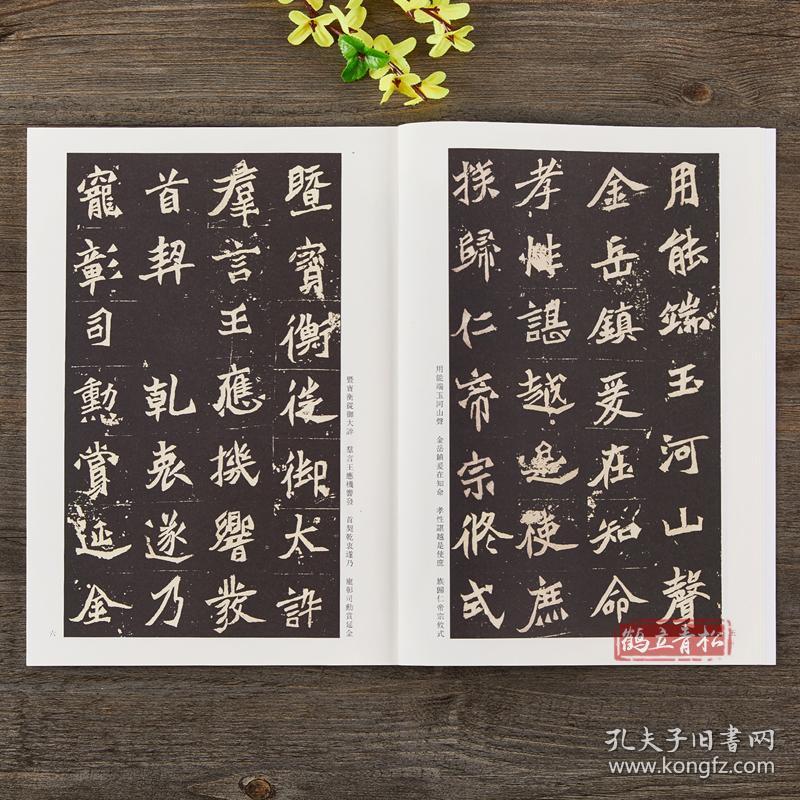 用能端玉河山聲
金岳鎮爰在知命
孝性諶越是使庶
族歸仁帝宗攸式
用能端玉河山聲 金岳鎮爰在知命 孝性諶越是使庶 族歸仁帝宗攸式
五
暨寶衡從御大許
羣言王應機響發
首契乾衷遂乃
寵彰司勳賞延金
暨寶衡從御大許 羣言王應機響發 首契乾衷遂乃 寵彰司勳賞延金
六
鹤立青松
孔夫子旧书网
www.kongfz.com